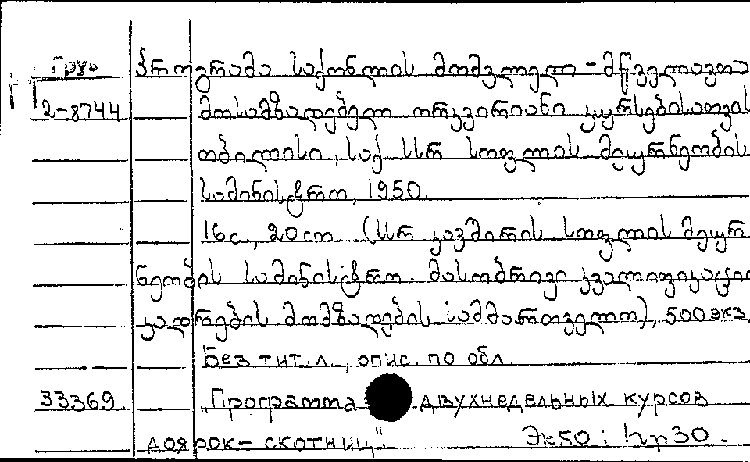 Груз პროგრამა საქონლის მომვლელ-მწველავთა
2-8744 მოსამზადებელ ორკვირიანი კურსებისათვის
თბილისი, საქ. სსრ სოფლის მეურნეობის
სამინისტრო, 1950.
16 с., 20 cm (სსრ კავშირის სოფლის მეურ
ნეობის სამინისტრო. მასობრივი კვალიფიკაციი
კადრების მომზადების სამმართველო), 500 экз.
Без тит. л., опис. по обл.
33369 „Программа двухнедельных курсов
доярок-скотниц"